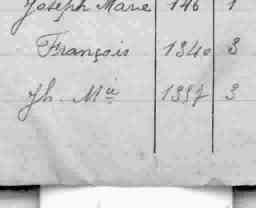 Joseph Marie 146 1
François 1340 3
Jh. Mie 1337 3